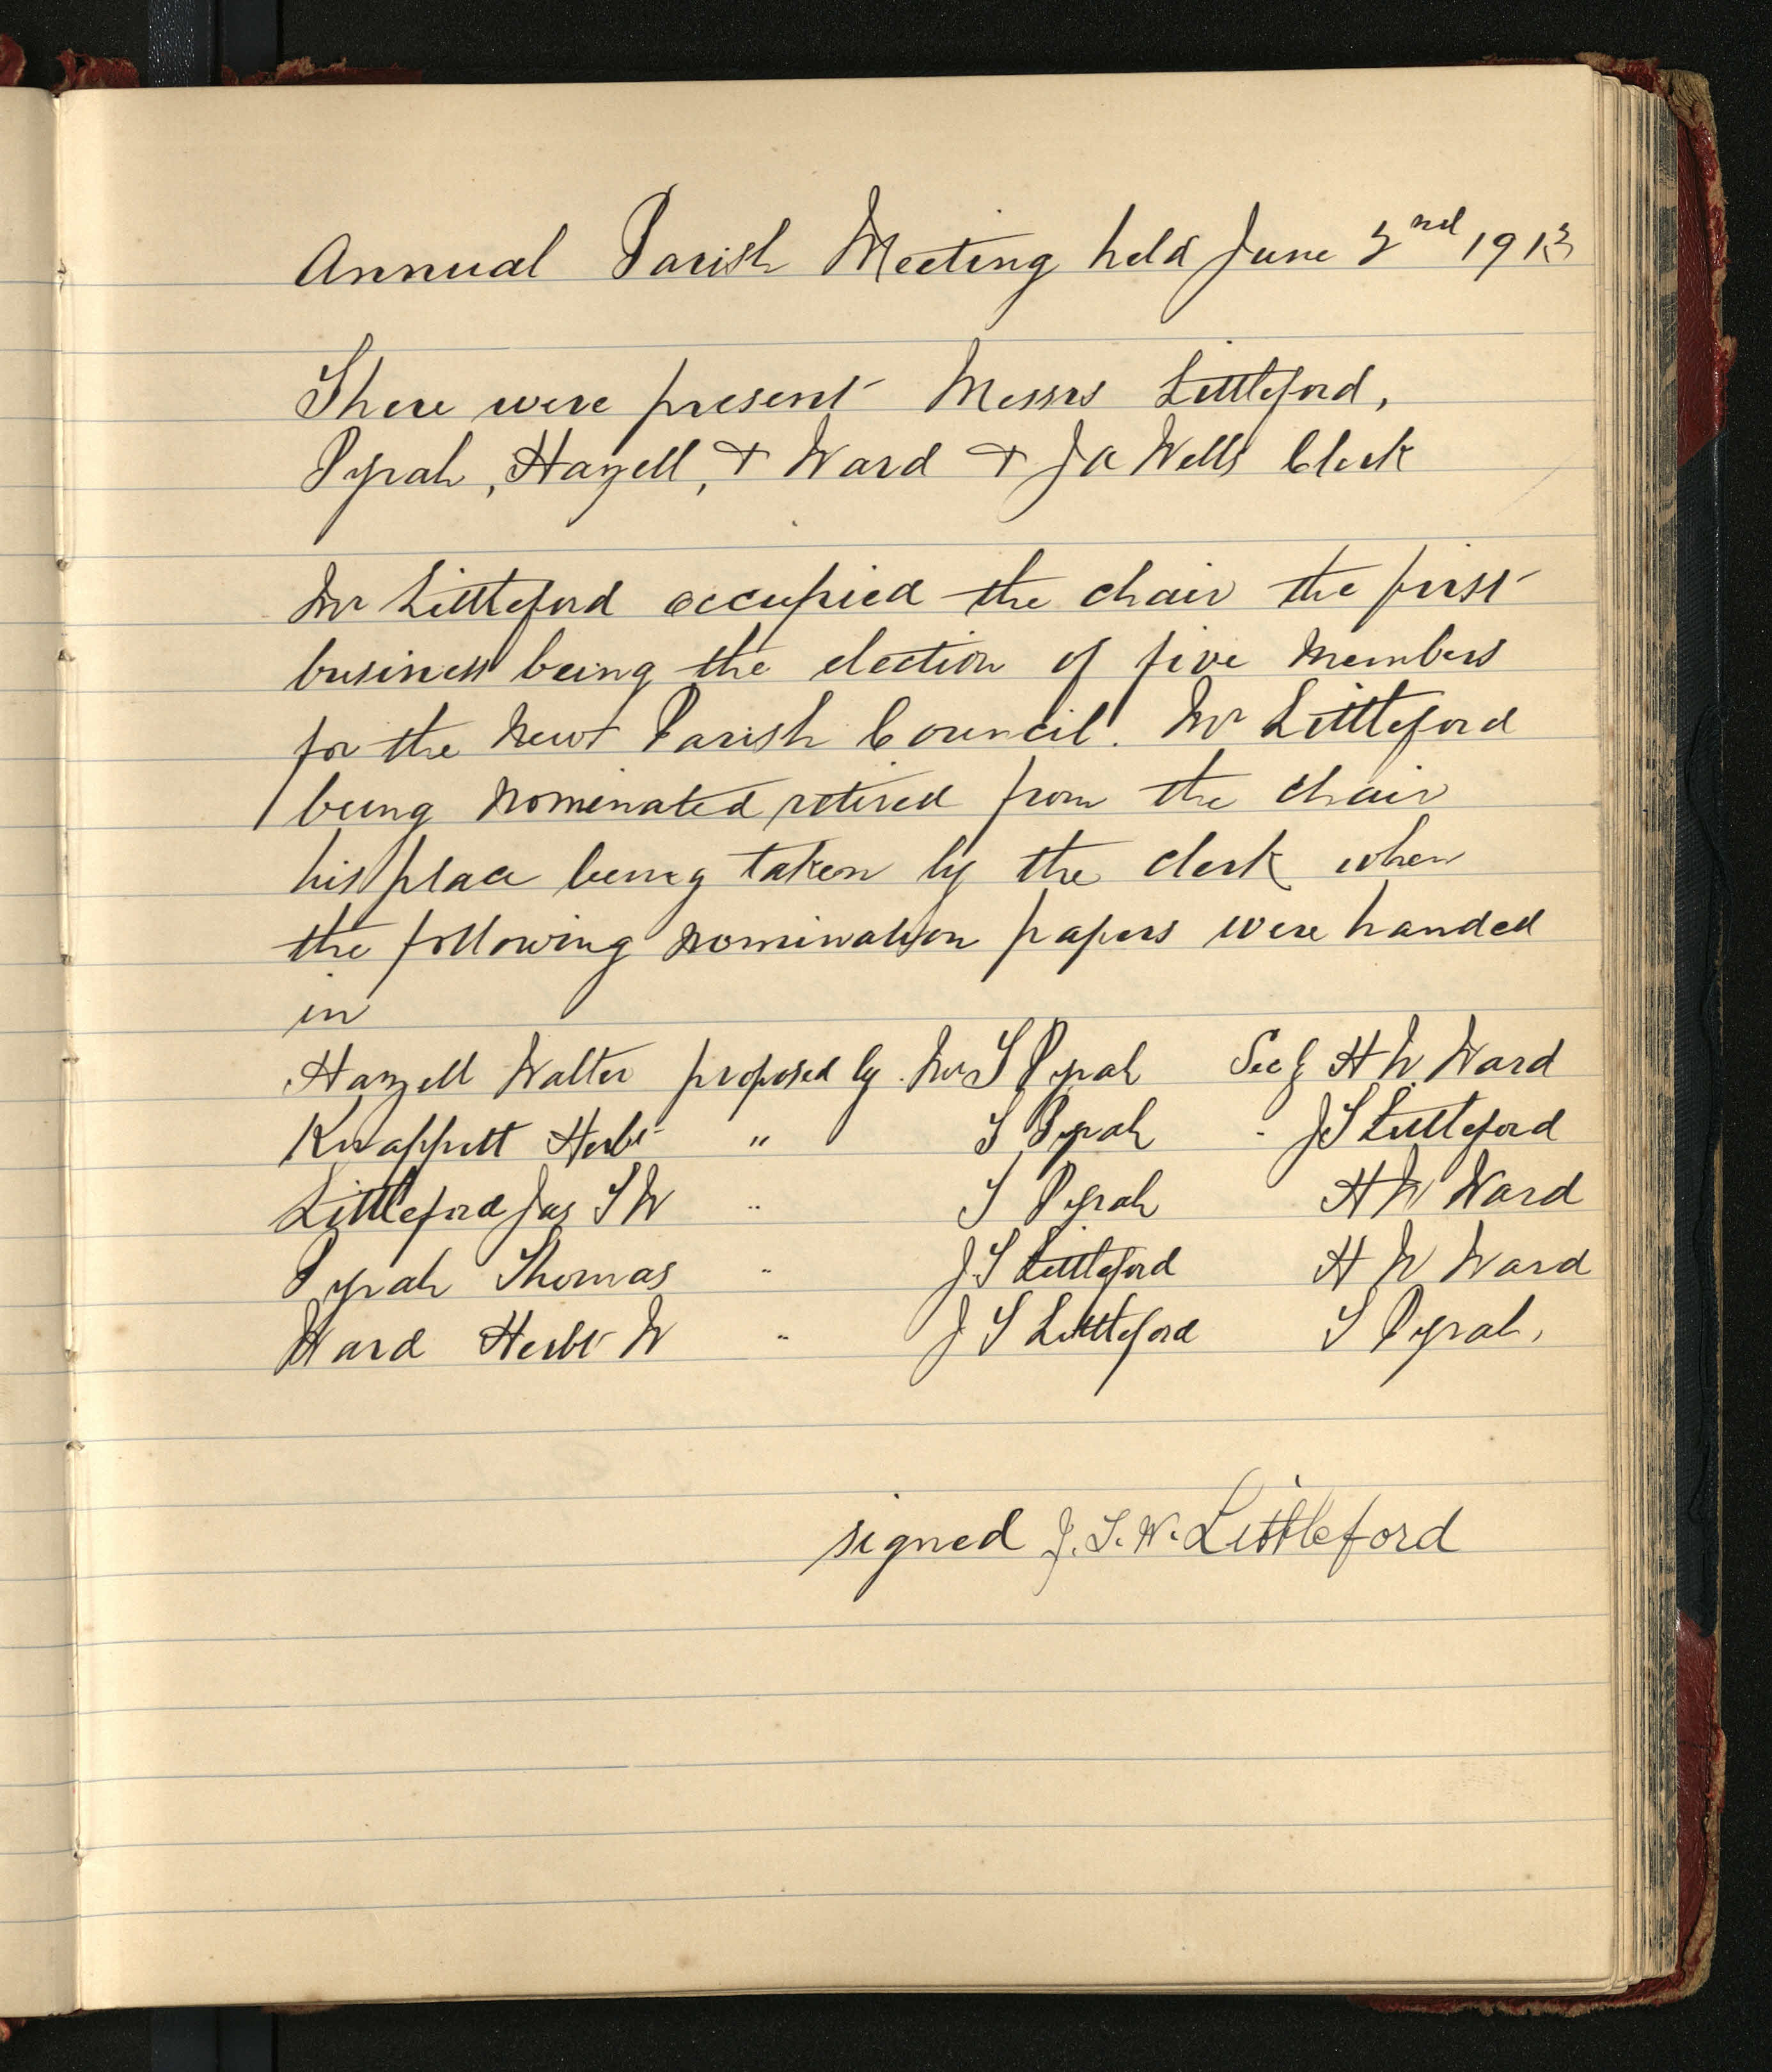 Annual Parish Meeting held June 2nd 1913
There were present Messrs Littleford,
Pyrah, Hazell, + Ward + J A Wells Clerk
Mr Littleford occupied the chair the first
business being the election of five Members
for the Next Parish Council. Mr Littleford
being Nominated retired from the chair
his place being taken by the clerk when
the following Nomination papers were handed
in
Hazzell Walter proposed by Mr T Pyrah Secd H W Ward
Knappett Herbt " T Pyrah " J T Littleford
Littleford Jas T W " T Pyrah H W Ward
Pyrah Thomas " J. T Littleford H W Ward
Ward Herbt W " J T Littleford T Pyrah,
signed J. T. W. Littleford